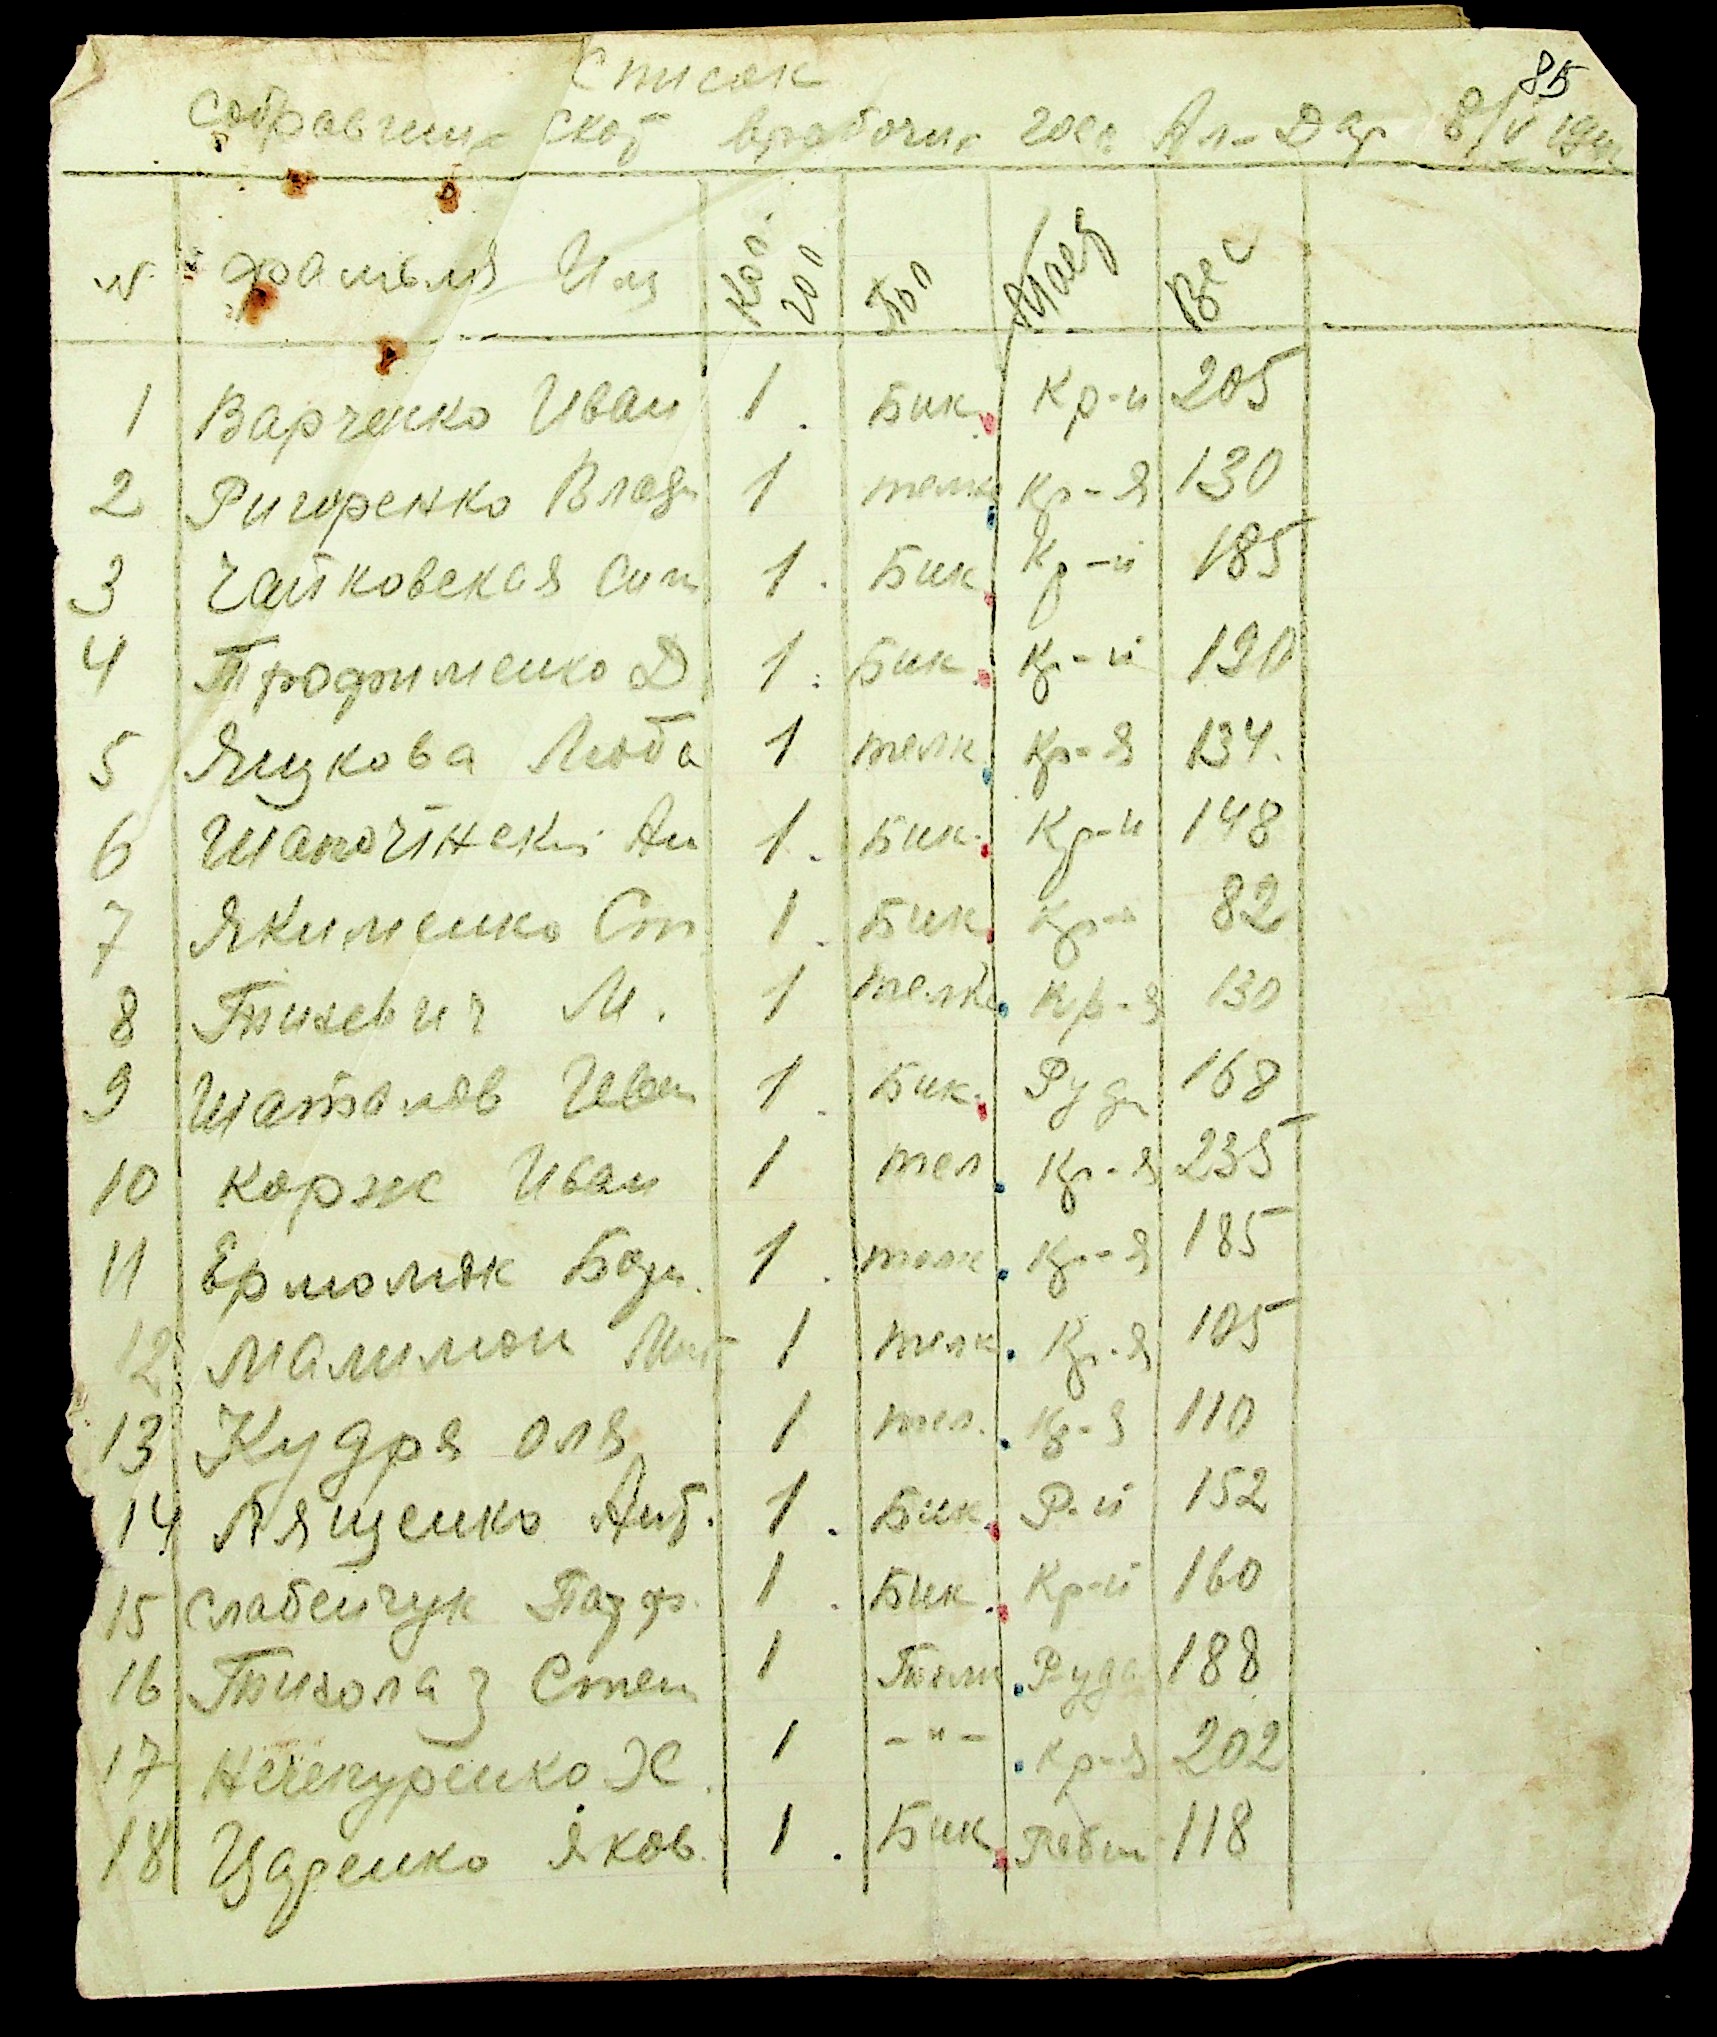 85
Список
скот рабочих госп. Ал-Дар 8/V
№ фамилия Имя Кол. гол Пол Масть Вес
1 Варченко Иван 1. Бик Кр-й 205
2 Ригоренко Влади 1 телка Кр-я 130
3 Чайковская 1. Бик Кр-й 185
4 Трофименко Д 1. Бик Кр-й 190
5 Ящукова Люба 1 телк Кр-я 134.
6 Шапочінский Ан 1. Бик. Кр-й 148
7 Якименко Ст 1. Бик Кр-й 82
8 Тихевич М. 1 телка Кр-я 130
9 Шаталов Иван 1. Бик. Руди 168
10 Корж Иван 1 тел Кр-я 235
11 Ермоляк Боди. 1. телк Кр-я 185
12 Малимон Мит 1 телк. Кр-я 105
13 Кудря Оля 1 тел. Кр-я 110
14 Лященко Ант. 1. Бик Р-й 152
15 Слабейчук Панф. 1. Бик Кр-й 160
16 Тихолаз Степ 1 Телк Руда 188
17 Нечепуренко Х. 1 -"- Кр-я 202
18 Царенко Яков. 1. Бик Рябий 118